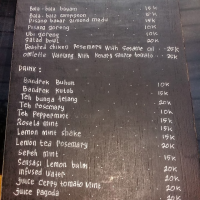 Bola - bola bayam 15K
Bola - bola tempe 15K
Pisang bakar almond madu 15K
Pisang goreng 10K
Ubi goreng 10K
Salad bowl 20K
Roasted chicken Rosemary with sesame oil - 25K
omelette with tomato 20K
DRINK :
Bandrek Buhun 10K
Bandrek Kolot 15K
Teh bunga telang 20K
Teh rosemary 10K
Teh Peppermint 10K
Rosela mint 15K
Lemon mint shake 15K
Lemon tea Rosemary 20K
Sereh mint 15K
Sensasi Lemon balm 20K
infused water 20K
juice cerry tomato mint 20K
juice pagoda 20K